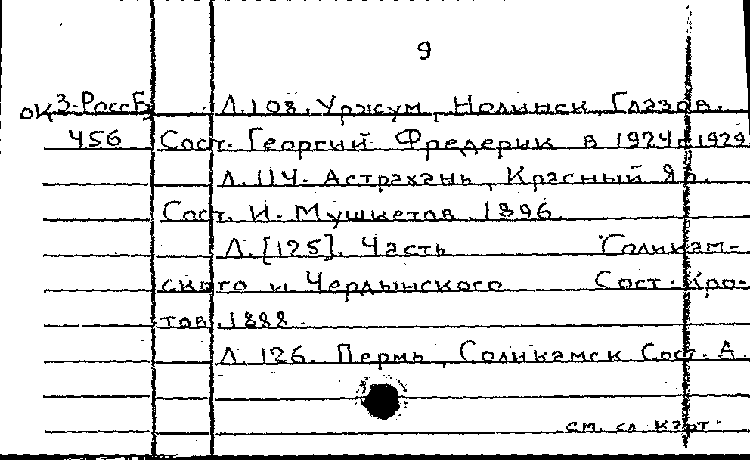 9
ОК 3-РоссЕ Л.108. Уржум, Нолинск, Глазов.
456 Сост. Георгий Фредерик в 1924-1929
Л.114. Астрахань, Красный Яр.
Сост. И. Мушкетов 1896.
Л.[125]. Часть Соликам-
ского и Чердынского Сост. Кро-
тов. 1888.
Л. 126. Пермь, Соликамск Сост. А.
см. сл карт.